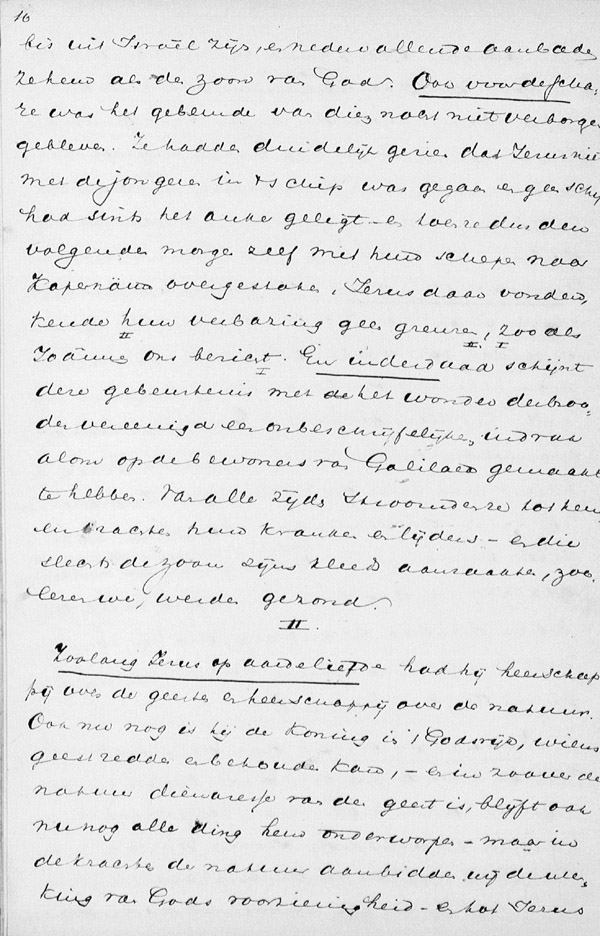 16
bis uit Israël zijn, en nedervallende aanbaden
ze hem als den zoon van God. Ook voor de scha-
re was het gebeurde van dien nacht niet verborgen
gebleven. Ze hadden duidelijk gezien dat Jezus niet
met de jongeren in 't schip was gegaan en geen schip
had sints het anker geligt – en toen ze dus den
volgenden morgen zelf met hun schepen naar
Kapernäum overgestoken, Jezus daar vonden,
kende hun verbazing geen grenzen, zoo als
II II. I
Joännes ons bericht. En inderdaad schijnt
I
deze gebeurtenis met het wonder der broo-
den vereenigd een onbeschrijfelijken indruk
alom op de bewoners van Galilaea gemaakt
te hebben. Van alle zijden stroomden ze tot hem
en brachten hun kranken en lijders – en die
slechts de zoom zijns kleeds aanraakten, zoo-
lezen wij, werden gezond.
II.
Zoolang Jezus op aarde leefde had hij heerschap-
pij over de geesten en heerschappij over de natuur.
Ook nu nog is hij de Koning in 't Godsrijk, wiens
geest redden en behouden kan, – en in zoover de
natuur dienaresse van den geest is, blijft ook
nu nog alle ding hem onderworpen – maar in
de krachten der natuur aanbidden wij de wer-
king van Gods voorzienigheid – en tot Jezus